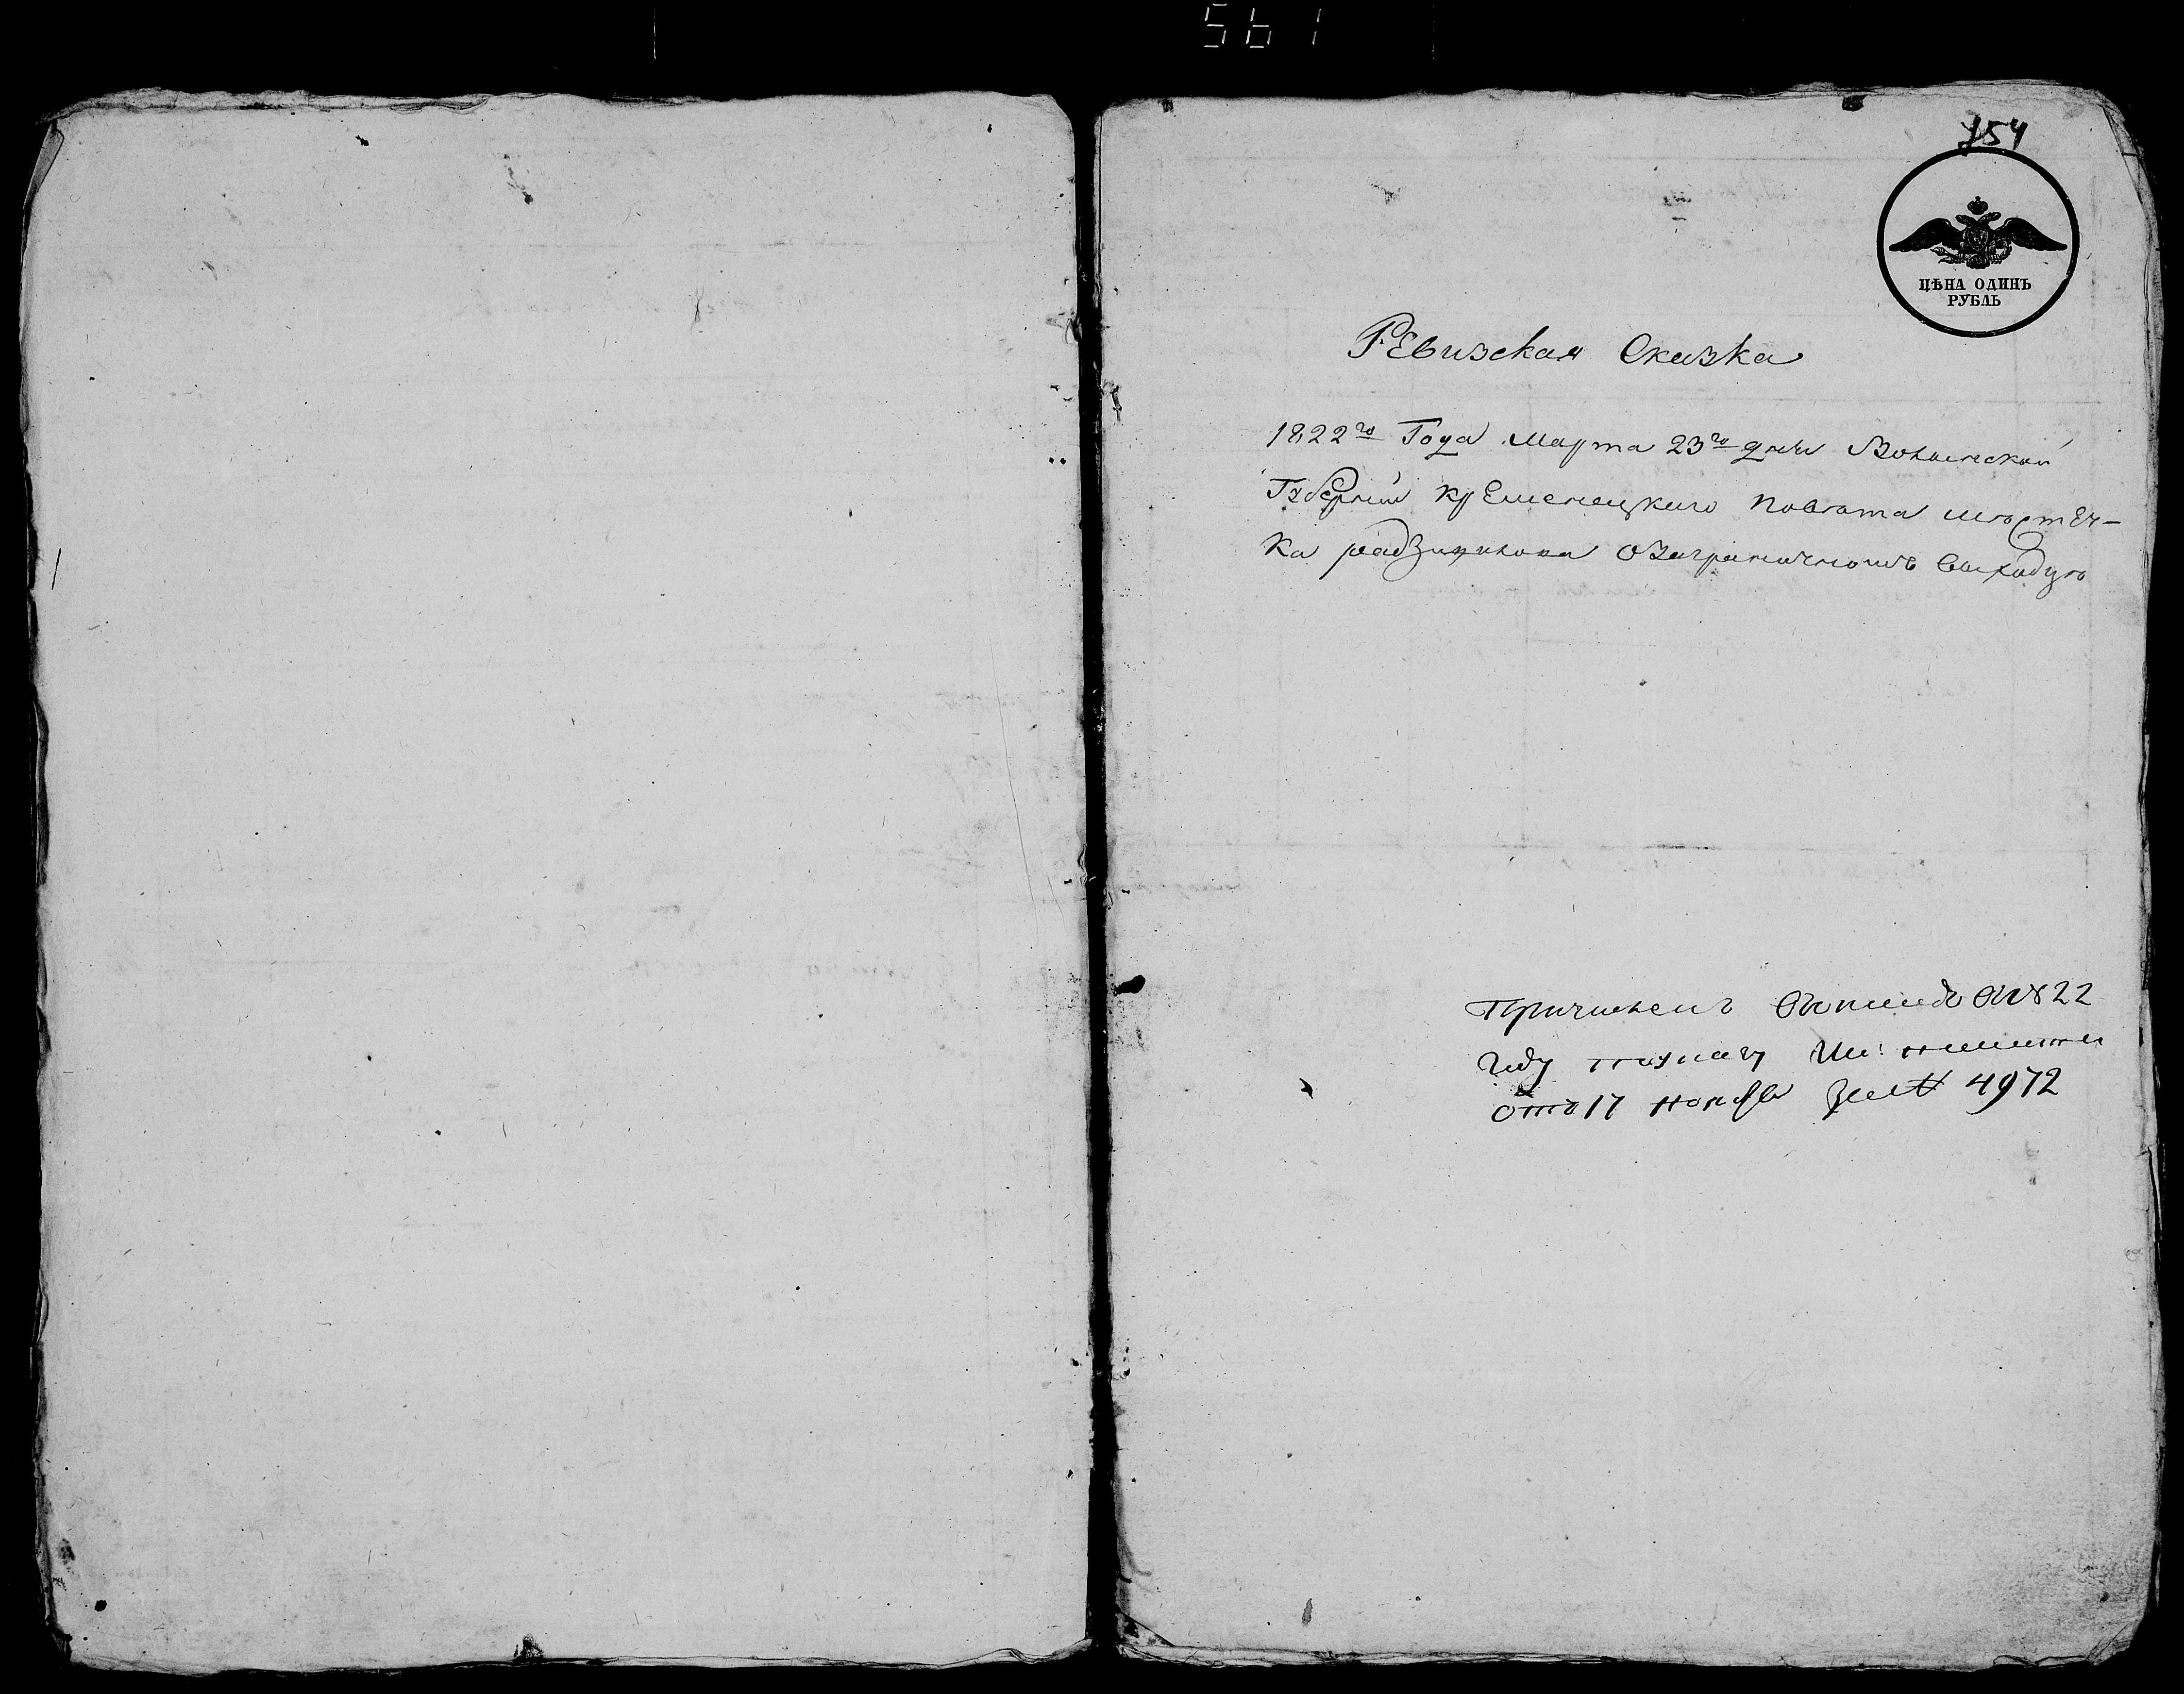 561
154
ЦѢНА ОДИНЪ
РУБЛЬ
Ревизская Сказка
1822го Года Марта 23го дня Волынской
Губернии Кременецкого Повѣта мѣстеч-
ка радзивилова Озаграничномъ выходцѣ
Причисленъ 1822
году казначу
отъ 17 ноября за № 4972